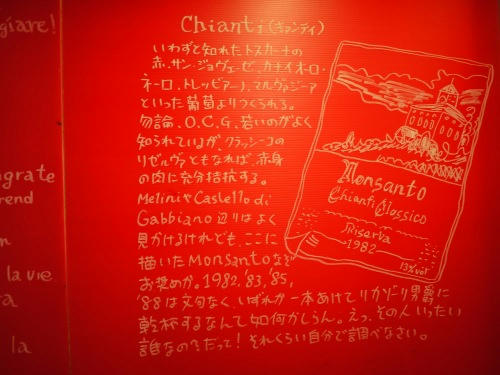 giare!
ngrate
rend
n
la vie
ra
la
Chianti (キアンティ)
いわずと知れたトスカーナの
赤。サン・ジョヴェーゼ、カナイオーロ・
ネーロ、トレッビアーノ、マルヴァジーア
といった葡萄よりつくられる。
勿論、O.C.G、若いのがよく
知られているが、クラッシーコの
リゼルヴァともなれば、赤身
の肉に充分拮抗する。
MeliniやCastello di
Gabbiano辺りはよく
見かけるけれども、ここに
描いたMonsantoなどが
お奨めか。1982、'83、'85、
'88は文句なく、いずれか一本あけてリカゾリ男爵に
乾杯するなんて如何かしらん。えっ、その人いったい
誰なの?だって!それくらい自分で調べなさい。
Monsanto
Chianti Classico
Riserva
1982
13%vol